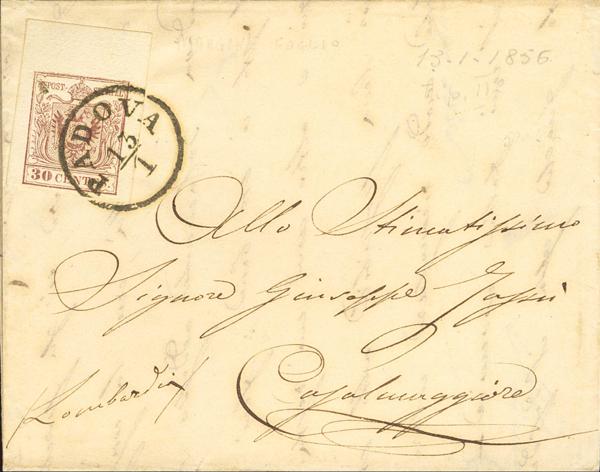 BORDO DI FOGLIO
13-1-1856
PADOVA
13/1
30 CENTES.
Allo Stimatissimo
Signore Giuseppe
Casalmaggiore
Lombardia